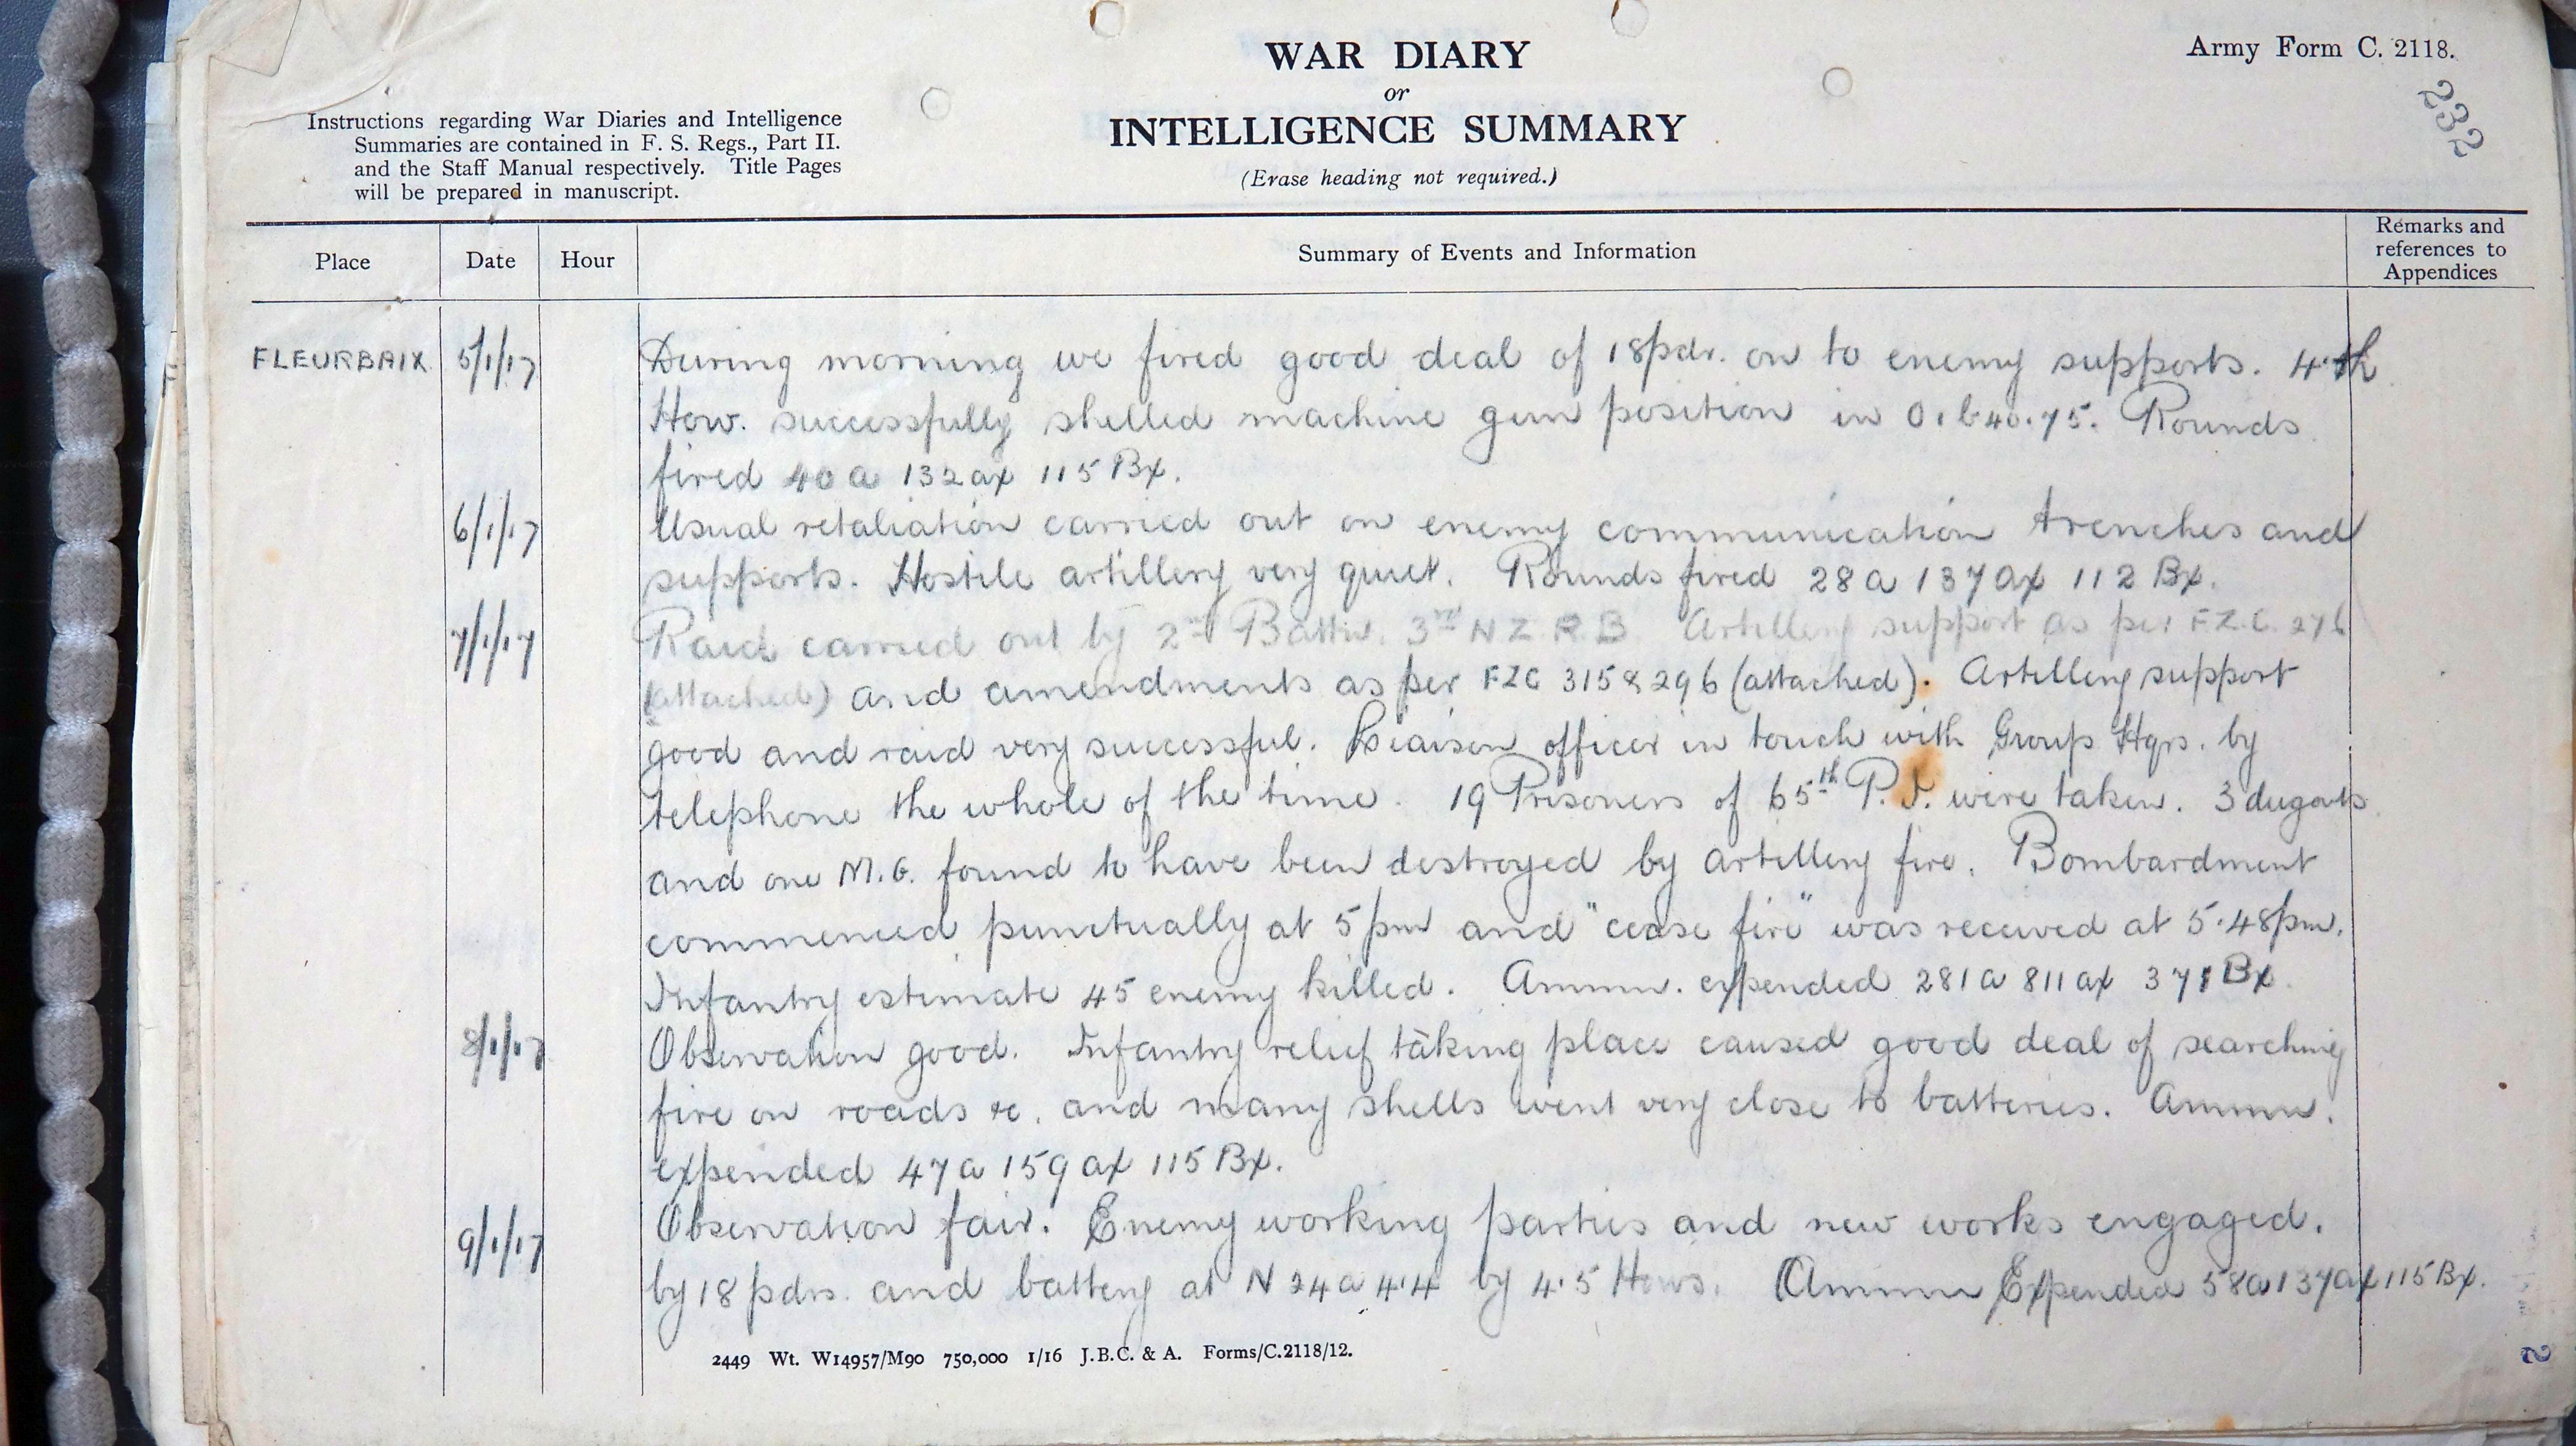 WAR DIARY
or
INTELLIGENCE SUMMARY
(Erase heading not required.)
Army Form C. 2118.
232
Instructions regarding War Diaries and Intelligence
Summaries are contained in F. S. Regs., Part II.
and the Staff Manual respectively. Title Pages
will be prepared in manuscript.
Place Date Hour Summary of Events and Information Remarks and references to Appendices
FLEURBAIX 5/1/17 During morning we fired good deal of 18pdr. on to enemy supports.
How. successfully shelled machine gun position in Rounds
fired 40 a 132 ax 115 Bx.
6/1/17 Usual retaliation carried out on enemy communication trenches and
supports. Hostile artillery very quiet. Rounds fired 28 a 137 ax 112 Bx.
7/1/17 Raid carried out by 2nd Battn. 3rd N Z R B Artillery support as per FZC. 276
(attached) and amendments as per FZC 315 & 296 (attached). Artillery support
good and raid very successful. Liaison officer in touch with Group Hqrs. by
telephone the whole of the time. 19 Prisoners of 65th were taken. 3 dugouts
and one M.G. found to have been destroyed by artillery fire. Bombardment
commenced punctually at 5 pm and "cease fire" was received at 5.48pm.
Infantry estimate 45 enemy killed. Ammn. expended 281 a 811 ax 371 Bx
8/1/17 Observation good. Infantry relief taking place caused good deal of searching
fire on roads &c. and many shells went very close to batteries. Ammn.
expended 47 a 159 ax 115 Bx.
9/1/17 Observation fair. Enemy working parties and new works engaged.
by 18 pdrs. and battery at N 24 a 4.4 by 4.5 Hows. Ammn Expended 58 a 137 ax 115 Bx.
2449 Wt. W14957/M90 750,000 1/16 J.B.C. & A. Forms/C.2118/12.
2